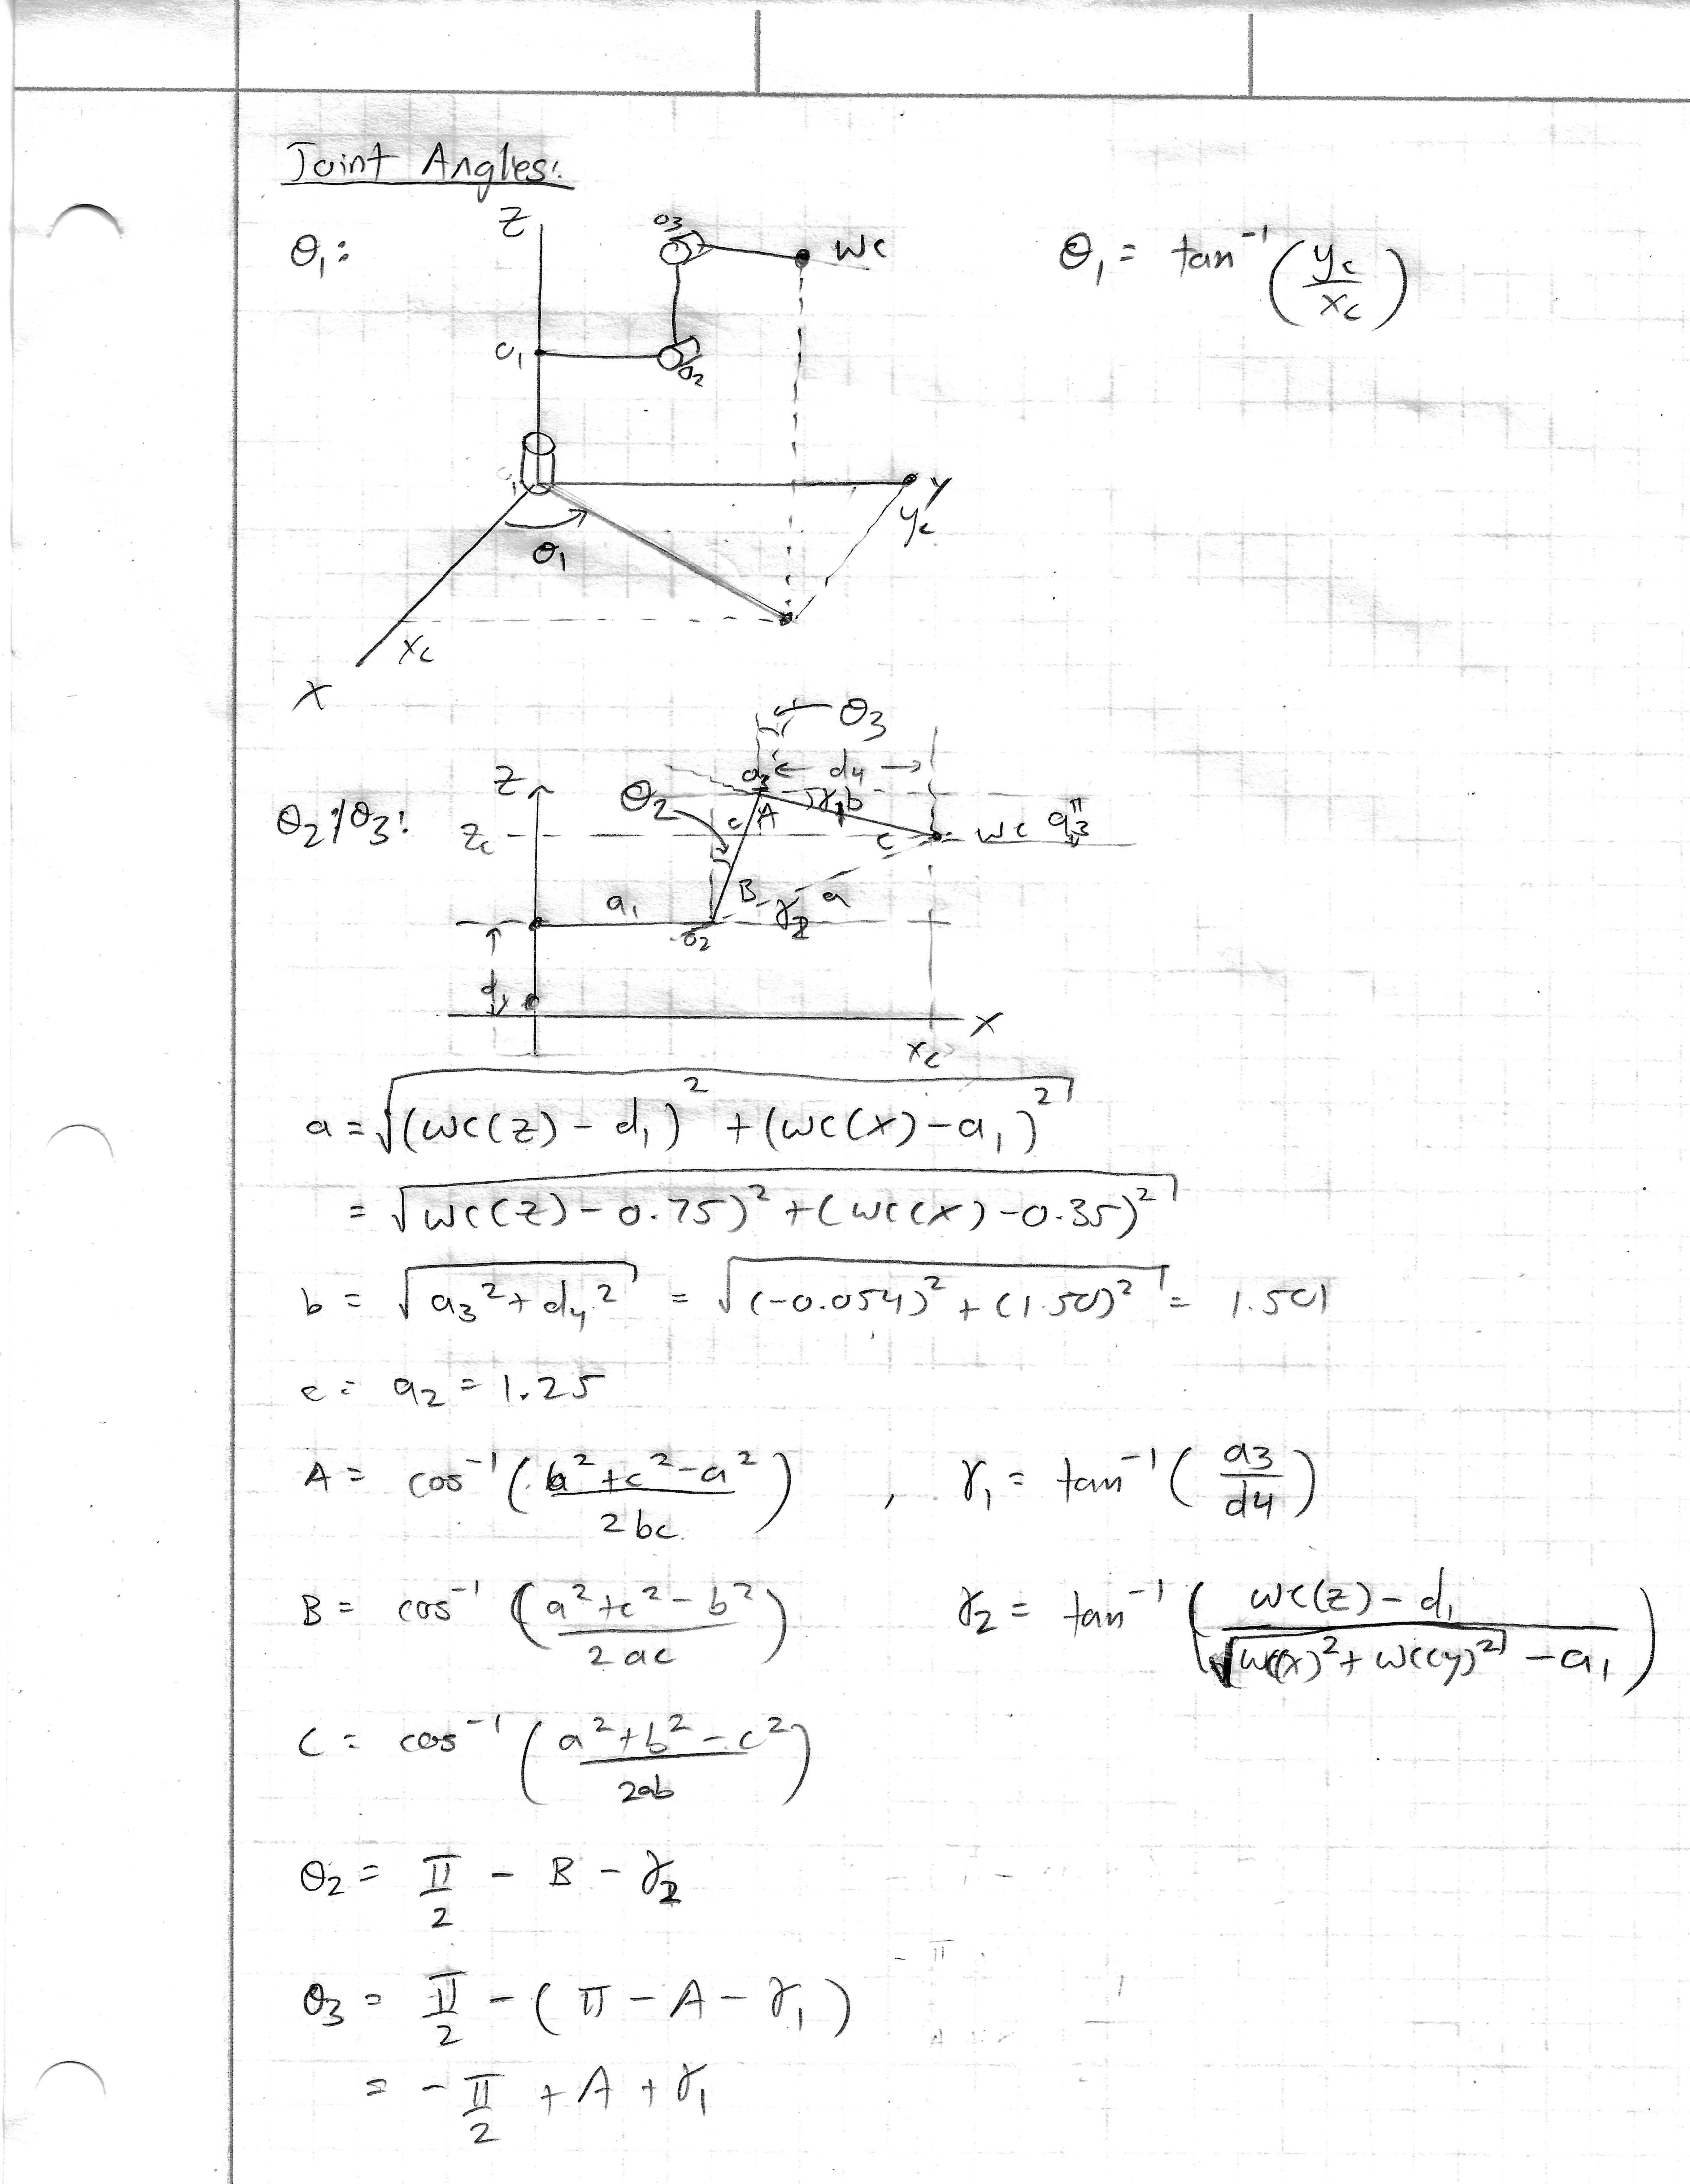 Joint Angles:
θ₁:
Z
O3
WC
θ₁ = tan⁻¹(yc/xc)
O₁
O₂
Y
yc
θ₁
xc
X
θ₂/θ₃:
θ3
Z
O3
d4
θ2
A
γ1
b
zc
c
C
WC
a3
B
γ2
a
a₁
O2
d₁
X
xc
a = √((WC(z) - d₁)² + (WC(x) - a₁)²)
= √(WC(z) - 0.75)² + (WC(x) - 0.35)²
b = √(a3² + d4²) = √((-0.054)² + (1.50)²) = 1.501
c = a2 = 1.25
A = cos⁻¹((b² + c² - a²)/2bc) , γ₁ = tan⁻¹(a3/d4)
B = cos⁻¹((a² + c² - b²)/2ac) γ2 = tan⁻¹((WC(z) - d₁)/(√(WC(x)² + WC(y)²) - a₁))
C = cos⁻¹((a² + b² - c²)/2ab)
θ2 = π/2 - B - γ2
θ3 = π/2 - (π - A - γ₁)
= -π/2 + A + γ₁